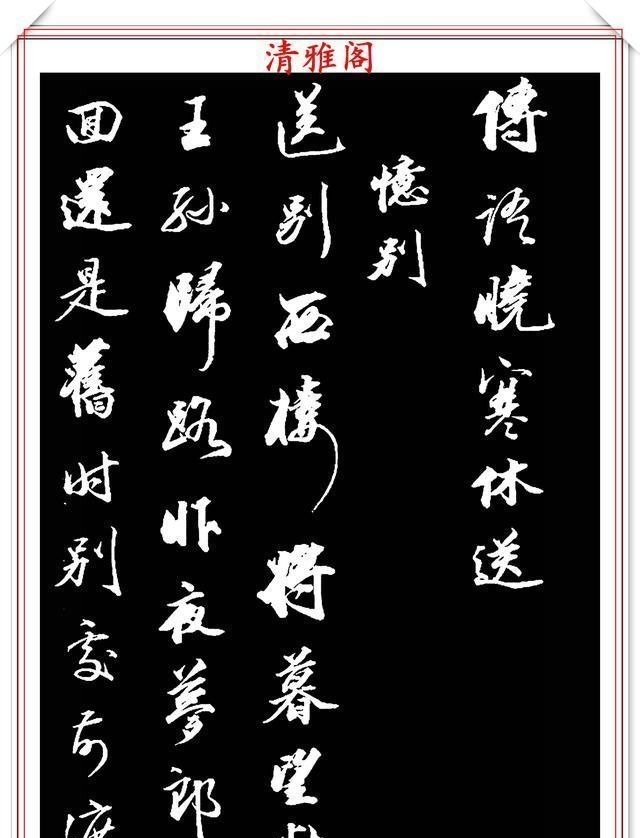 清雅阁
傳語曉寒休送
憶別
送別西樓將暮望
王孫歸路昨夜夢郎
回還是舊时別處前渡